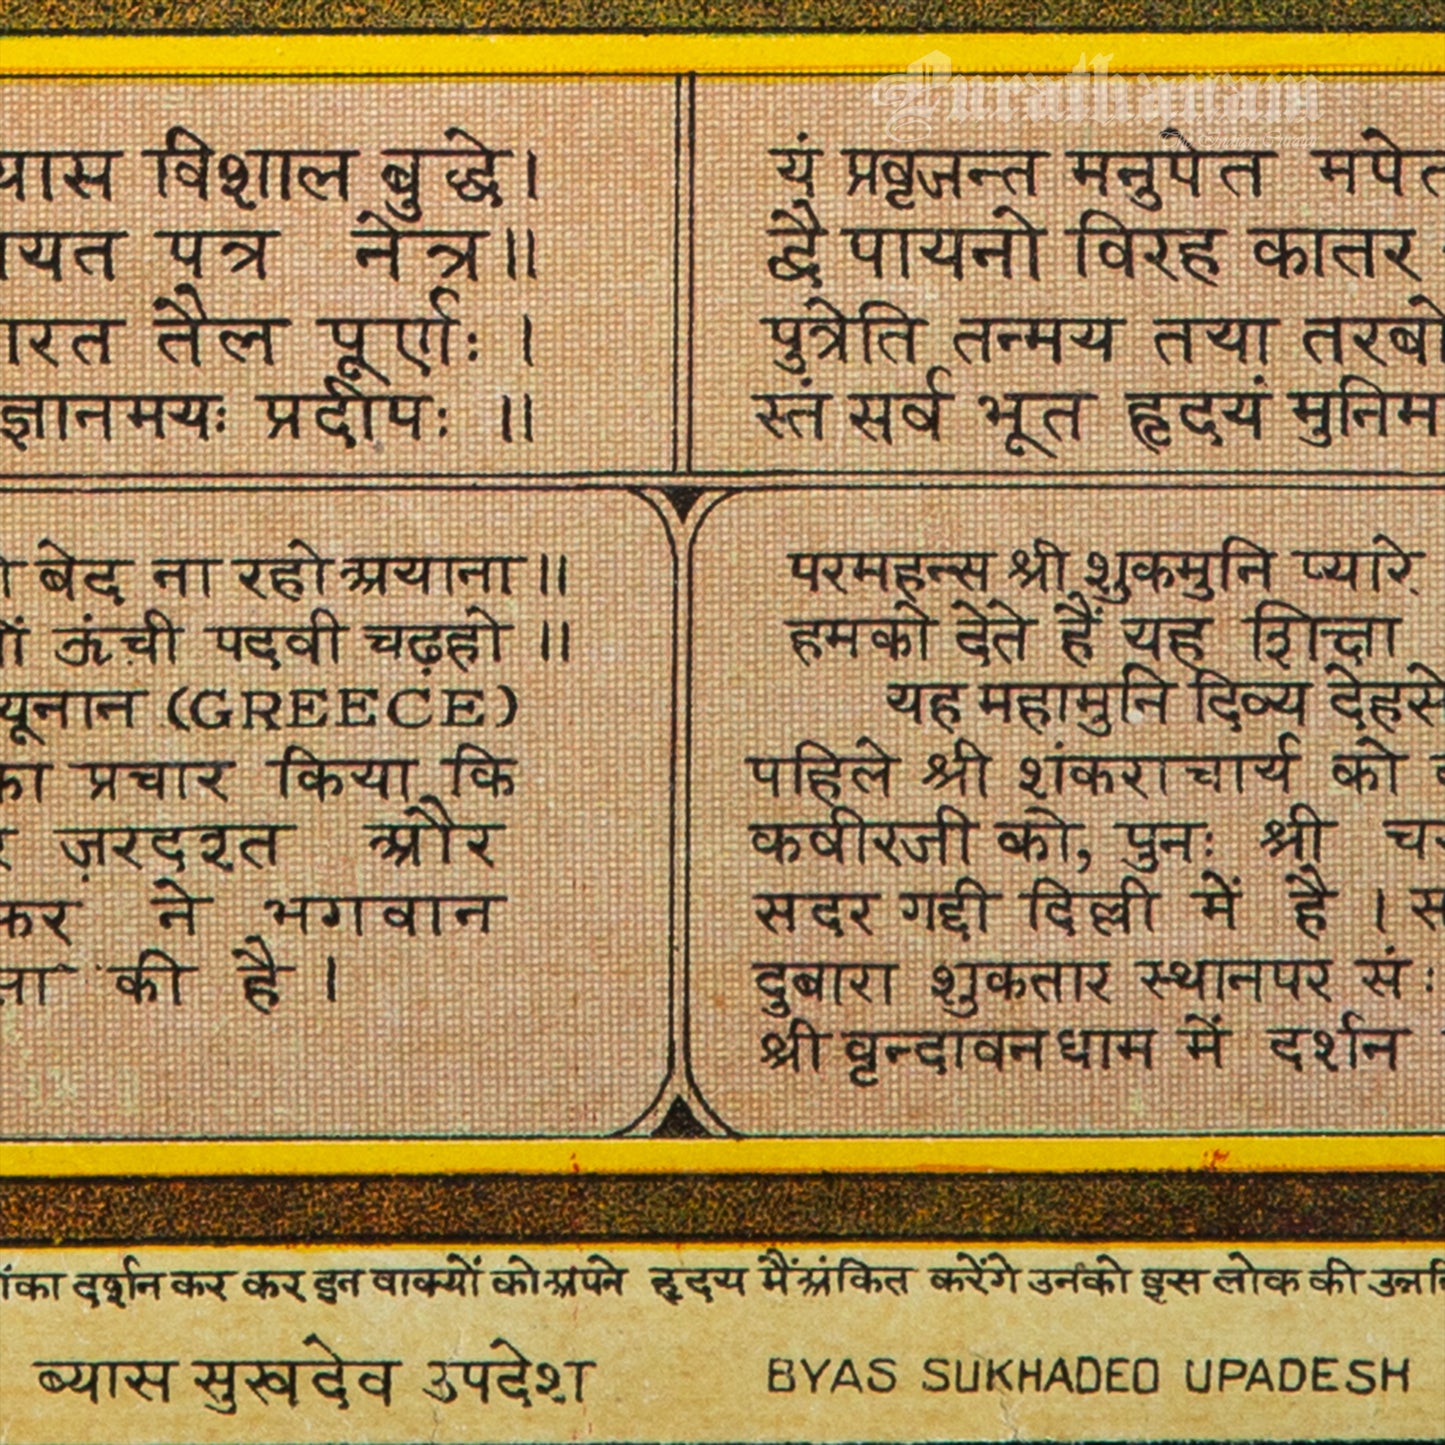 Purathanam
यास विशाल बुद्धे।
यत पत्र नेत्र॥
रत तैल पूर्णः ।
ज्ञानमयः प्रदीपः ॥
यं प्रवृजन्त मनुपेत मपेत
द्वै पायनो विरह कातर
पुत्रेति तन्मय तया तरबो
स्तं सर्व भूत हृदयं मुनिम
बेद ना रहो अयाना॥
ऊंची पदवी चढ़हो ॥
यूनान (GREECE)
का प्रचार किया कि
ज़रदश्त और
कर ने भगवान
की है ।
परमहन्स श्री शुकमुनि प्यारे
हमको देते हैं यह शिक्षा
यह महामुनि दिव्य देहसे
पहिले श्री शंकराचार्य को
कवीरजी को, पुनः श्री च
सदर गद्दी दिल्ली में है । स
दुबारा शुकतार स्थानपर सं:
श्री वृन्दावनधाम में दर्शन
का दर्शन कर कर इन वाक्यों को अपने हृदय मैं अंकित करेंगे उनको इस लोक की उन्नति
ब्यास सुखदेव उपदेश BYAS SUKHADEO UPADESH